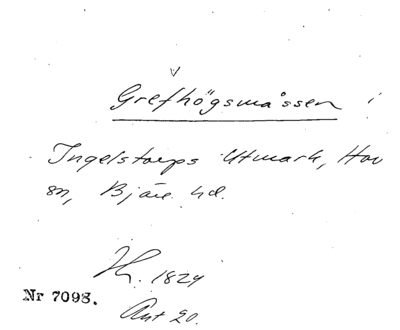 Grefhögsmåssen i
Ingelstorps Utmark, Hov
sn, Bjäre hd.
1824
Nr 7098.
Akt 20.